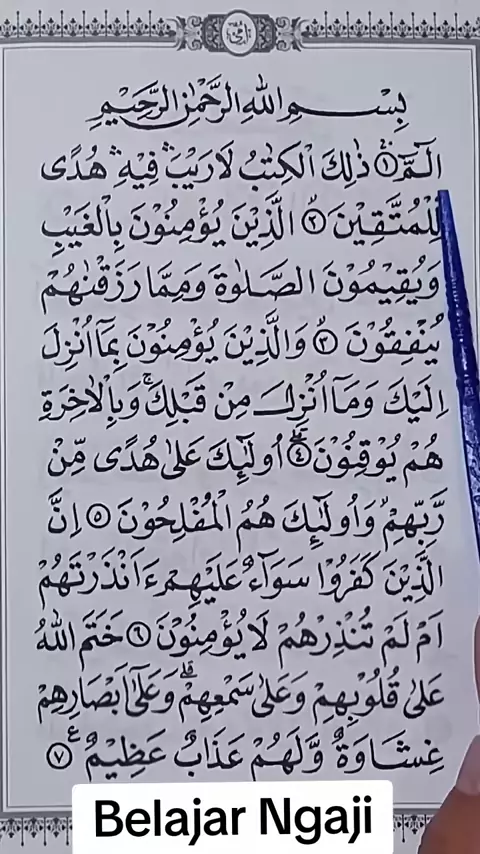 بِسْمِ اللّٰهِ الرَّحْمٰنِ الرَّحِيْمِ
الٓمّٓ ۚ ﴿١﴾ ذٰلِكَ الْكِتٰبُ لَا رَيْبَ ۛ فِيْهِ ۛ هُدًى
لِّلْمُتَّقِيْنَ ۙ ﴿٢﴾ الَّذِيْنَ يُؤْمِنُوْنَ بِالْغَيْبِ
وَيُقِيْمُوْنَ الصَّلٰوةَ وَمِمَّا رَزَقْنٰهُمْ
يُنْفِقُوْنَ ۙ ﴿٣﴾ وَالَّذِيْنَ يُؤْمِنُوْنَ بِمَآ اُنْزِلَ
اِلَيْكَ وَمَآ اُنْزِلَ مِنْ قَبْلِكَ ۚ وَبِالْاٰخِرَةِ
هُمْ يُوْقِنُوْنَ ۗ ﴿٤﴾ اُولٰٓئِكَ عَلٰى هُدًى مِّنْ
رَّبِّهِمْ ۙ وَاُولٰٓئِكَ هُمُ الْمُفْلِحُوْنَ ﴿٥﴾ اِنَّ
الَّذِيْنَ كَفَرُوْا سَوَآءٌ عَلَيْهِمْ ءَاَنْذَرْتَهُمْ
اَمْ لَمْ تُنْذِرْهُمْ لَا يُؤْمِنُوْنَ ﴿٦﴾ خَتَمَ اللّٰهُ
عَلٰى قُلُوْبِهِمْ وَعَلٰى سَمْعِهِمْ ۗ وَعَلٰٓى اَبْصَارِهِمْ
غِشَاوَةٌ وَّلَهُمْ عَذَابٌ عَظِيْمٌ ࣖ ﴿٧﴾
Belajar Ngaji